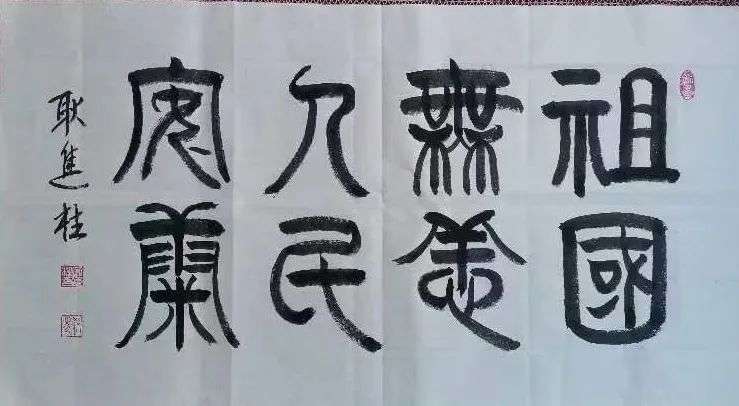 祖國
無恙
人民
安康
耿進桂